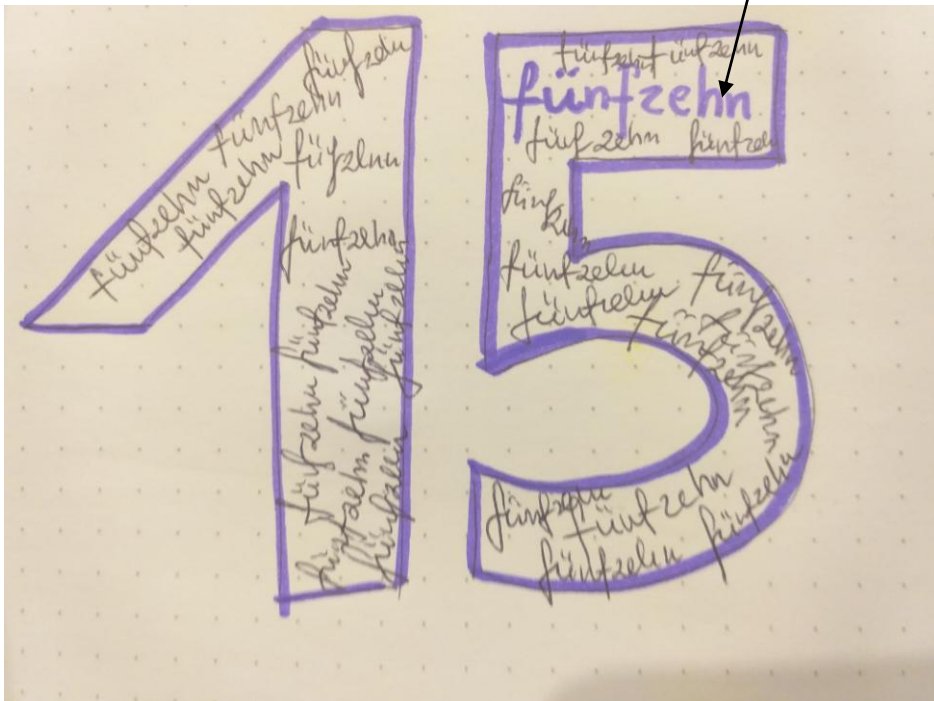 15
fünfzehn
fünfzehn
fünfzehn
fünfzehn
füfzehn
fünfzehn
fünfzehn fünfzehn
fünfzehn fünfzehn
fünfzehn fünfzehn
fünfzehn fünfzehn
fünfzehn
füufzehn fünfzehn
fünfzehn
fünfzehn
fünfzehn
fünfzehn
fünfzehn
fünfzehn
fünfzehn
fünfzehn
fünfzehn
fünfzehn
fünfzehn